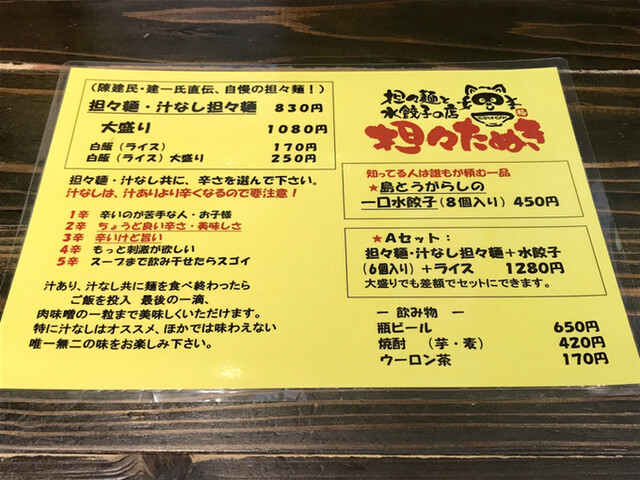 (陳建民・建一氏直伝、自慢の担々麺！)
担々麺・汁なし担々麺 830円
大盛り 1080円
白飯（ライス） 170円
白飯（ライス）大盛り 250円
担々麺・汁なし共に、辛さを選んで下さい。
汁なしは、汁ありより辛くなるので要注意！
1辛 辛いのが苦手な人・お子様
2辛 ちょうど良い辛さ・美味しさ
3辛 辛いけど旨い
4辛 もっと刺激が欲しい
5辛 スープまで飲み干せたらスゴイ
汁あり、汁なし共に麺を食べ終わったら
ご飯を投入 最後の一滴、
肉味噌の一粒まで美味しくいただけます。
特に汁なしはオススメ、ほかでは味わえない
唯一無二の味をお楽しみ下さい。
担々麺と
水餃子の店
担々たぬき
知ってる人は誰もが頼む一品
★島とうがらしの
一口水餃子(8個入り) 450円
★Aセット：
担々麺・汁なし担々麺＋水餃子
(6個入り)＋ライス 1280円
大盛りでも差額でセットにできます。
― 飲み物 ―
瓶ビール 650円
焼酎 （芋・麦） 420円
ウーロン茶 170円